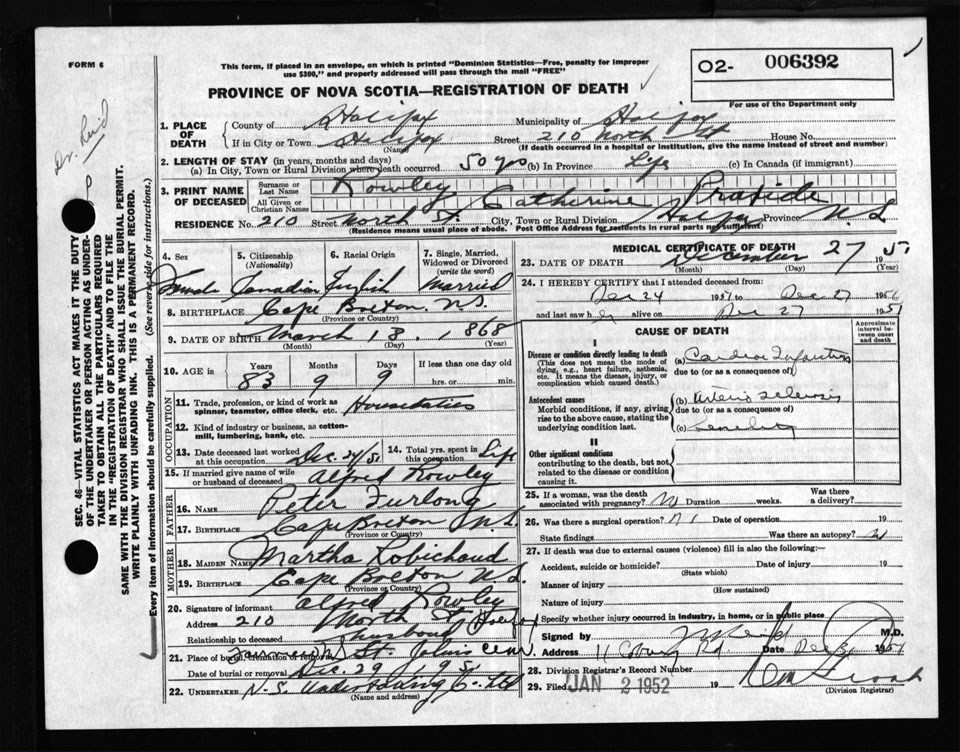 FORM 6
This form, if placed in an envelope, on which is printed "Dominion Statistics—Free, penalty for improper
use $300," and properly addressed will pass through the mail "FREE"
O2- 006392
For use of the Department only
PROVINCE OF NOVA SCOTIA—REGISTRATION OF DEATH
Dr. Reid
SEC. 46—VITAL STATISTICS ACT MAKES IT THE DUTY
OF THE UNDERTAKER OR PERSON ACTING AS UNDER-
TAKER TO OBTAIN ALL THE PARTICULARS REQUIRED
IN THE "REGISTRATION OF DEATH" AND TO FILE THE
SAME WITH THE DIVISION REGISTRAR WHO SHALL ISSUE THE BURIAL PERMIT.
WRITE PLAINLY WITH UNFADING INK. THIS IS A PERMANENT RECORD.
Every item of information should be carefully supplied. (See reverse side for instructions.)
1. PLACE OF DEATH County of Halifax Municipality of Halifax
If in City or Town Halifax Street 210 North St House No.
(Name) (If death occurred in a hospital or institution, give the name instead of street and number)
2. LENGTH OF STAY (in years, months and days)
(a) In City, Town or Rural Division where death occurred 50 yrs (b) In Province Life (c) In Canada (if immigrant)
3. PRINT NAME OF DECEASED Surname or Last Name Rowley
All Given or Christian Names Catherine
RESIDENCE No. 210 Street North St. City, Town or Rural Division Halifax Province N.S.
(Residence means usual place of abode. Post Office Address for residents in rural parts not sufficient)
4. Sex 5. Citizenship (Nationality) 6. Racial Origin 7. Single, Married, Widowed or Divorced (write the word)
Female Canadian English Married
8. BIRTHPLACE Cape Breton N.S.
(Province or Country)
9. DATE OF BIRTH March 18, 1868
(Month) (Day) (Year)
10. AGE in Years Months Days If less than one day old
83 9 9 hrs. or min.
OCCUPATION
11. Trade, profession or kind of work as spinner, teamster, office clerk, etc. Houseduties
12. Kind of industry or business, as cotton-mill, lumbering, bank, etc.
13. Date deceased last worked at this occupation Dec. 24/51 14. Total yrs. spent in this occupation Life
15. If married give name of wife or husband of deceased Alfred Rowley
FATHER
16. NAME Peter Furlong
17. BIRTHPLACE Cape Breton N.S.
(Province or Country)
MOTHER
18. MAIDEN NAME Martha Robichaud
19. BIRTHPLACE Cape Breton N.S.
(Province or Country)
20. Signature of informant Alfred Rowley
Address 210 North St Halifax
Relationship to deceased husband
21. Place of burial, cremation or removal St. Johns Cem.
Date of burial or removal Dec. 29 1951
22. UNDERTAKER N.S. Undertaking Co. Ltd
(Name and address)
MEDICAL CERTIFICATE OF DEATH
23. DATE OF DEATH December 27 1951
(Month) (Day) (Year)
24. I HEREBY CERTIFY that I attended deceased from:
Dec 24 1951 to Dec 27 1951
and last saw her alive on Dec 27 1951
CAUSE OF DEATH
Approximate interval between cause and death
I
Disease or condition directly leading to death
(This does not mean the mode of dying, e.g., heart failure, asthenia, etc. It means the disease, injury, or complication which caused death.)
(a) Cardiac Infarction
due to (or as a consequence of)
Antecedent causes
Morbid conditions, if any, giving rise to the above cause, stating the underlying condition last.
(b) Arterio Sclerosis
due to (or as a consequence of)
(c) Senility
II
Other significant conditions
contributing to the death, but not related to the disease or condition causing it.
25. If a woman, was the death associated with pregnancy? No Duration weeks. Was there a delivery?
26. Was there a surgical operation? Date of operation 19
State findings Was there an autopsy?
27. If death was due to external causes (violence) fill in also the following:—
Accident, suicide or homicide? Date of injury 19
(State which)
Manner of injury
(How sustained)
Nature of injury
Specify whether injury occurred in industry, in home, or in public place
Signed by Reid M.D.
Address 11 Coburg Rd. Date Dec 1951
28. Division Registrar's Record Number
29. Filed JAN 2 1952 19
(Division Registrar)